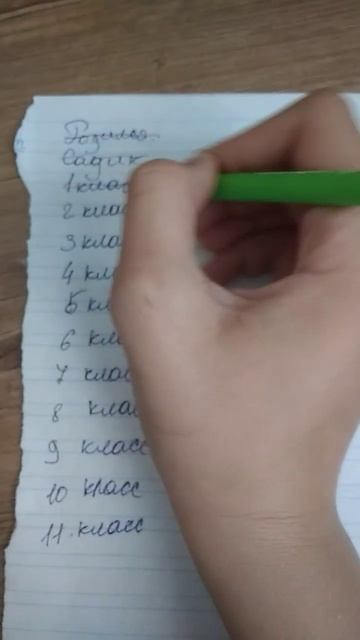 Родился
Садик
1 клас
2 клас
3 кла
4 кл
5 кл
6 кл
7 клас
8 клас
9 класс
10 класс
11. класс